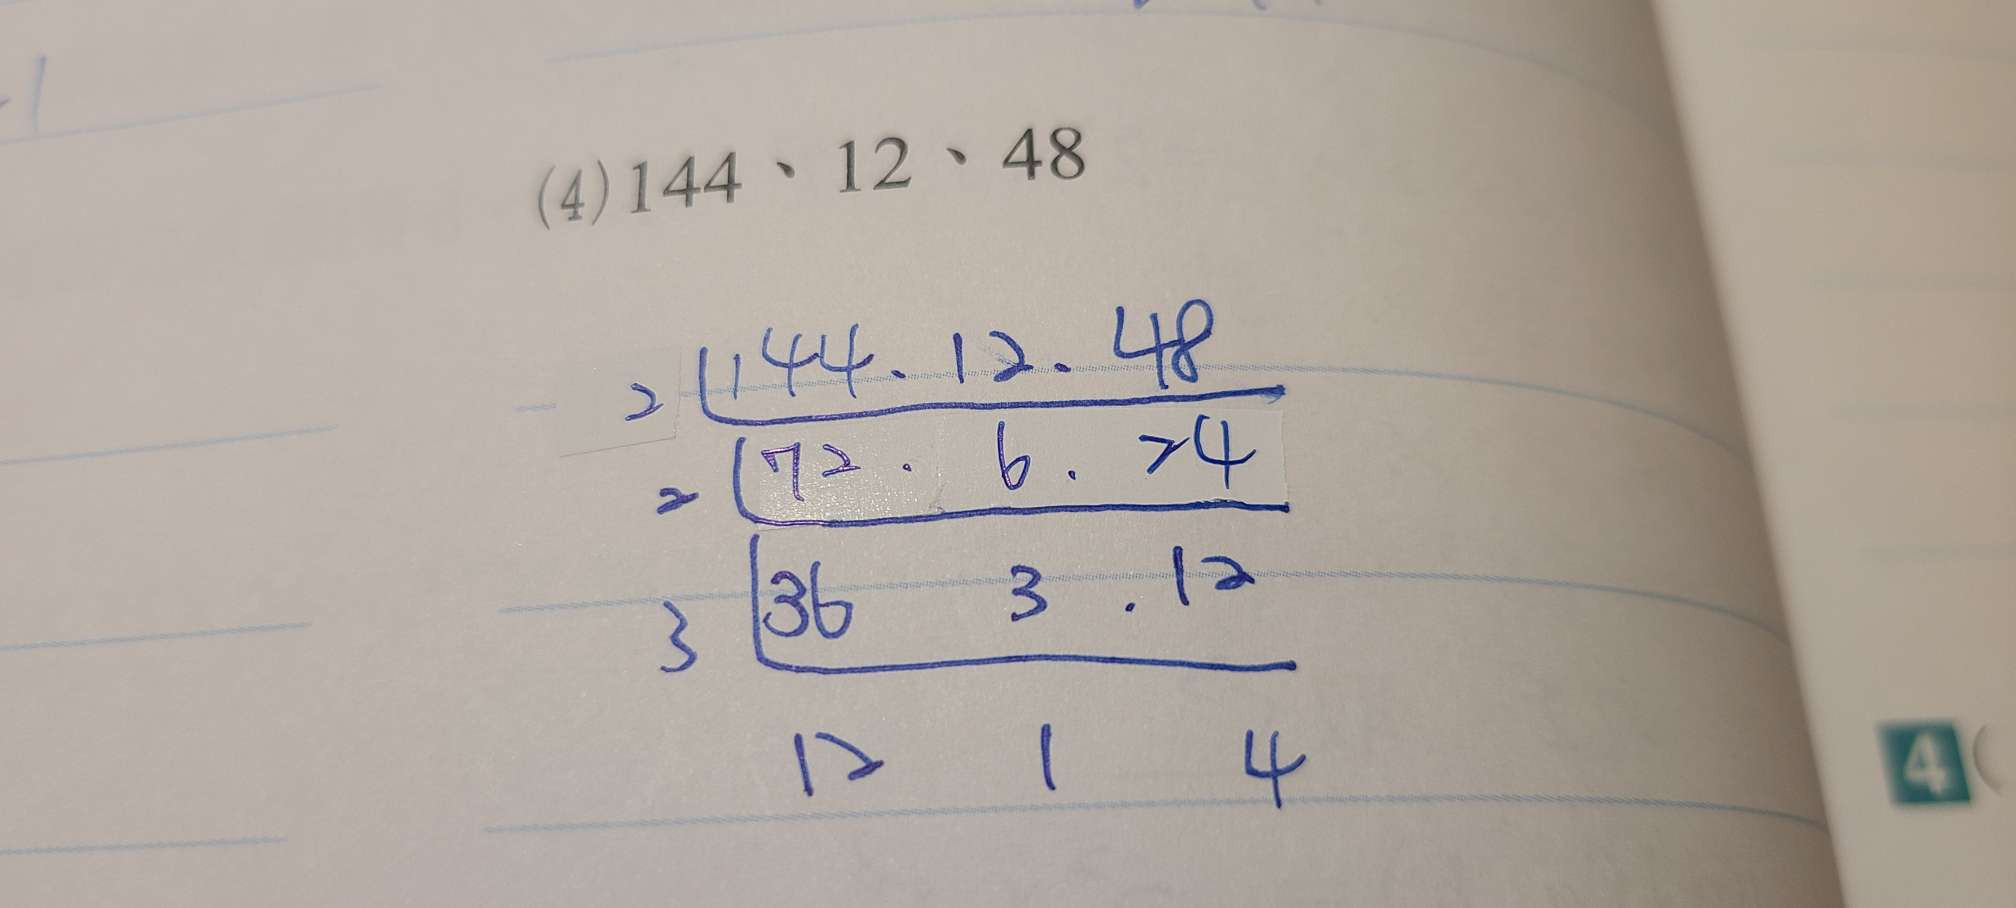 (4)144、12、48
2 144. 12. 48
2 72. 6. 24
3 36 3. 12
12 1 4
4